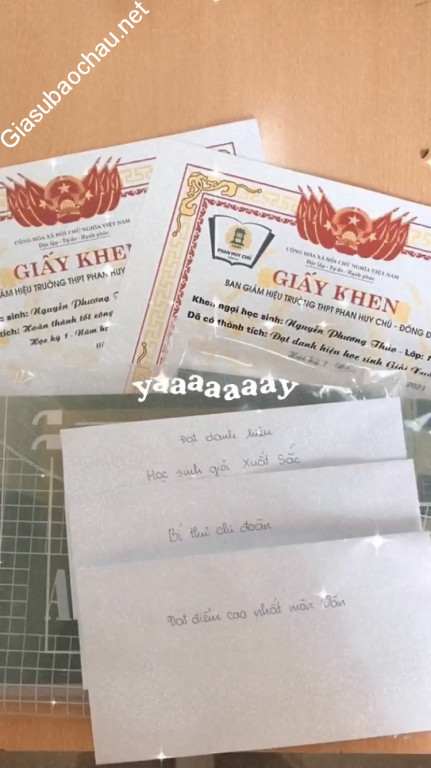 Giasubaochau.net
CỘNG HÒA XÃ HỘI CHỦ NGHĨA VIỆT NAM
Độc lập - Tự do - Hạnh phúc
GIẤY KHEN
GIÁM HIỆU TRƯỜNG THPT PHAN HUY
sinh: Nguyễn Phương
tích: Hoàn thành tốt công
Học kỳ 1 - Năm
PHAN HUY CHÚ
CỘNG HÒA XÃ HỘI CHỦ NGHĨA VIỆT NAM
Độc lập - Tự do - Hạnh phúc
GIẤY KHEN
BAN GIÁM HIỆU TRƯỜNG THPT PHAN HUY CHÚ - ĐỐNG
Khen ngợi học sinh: Nguyễn Phương Thảo - Lớp: 1
Đã có thành tích: Đạt danh hiệu học sinh Giỏi
Học kỳ 1 -
2021
yaaaaaaaay
Đạt danh hiệu
Học sinh giỏi Xuất Sắc
Bí thư chi đoàn
Đạt điểm cao nhất môn